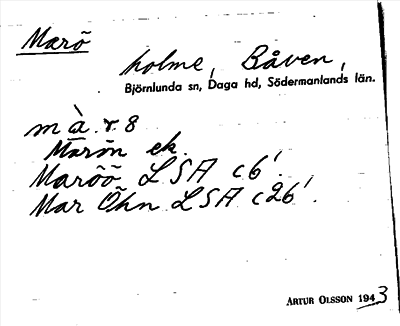 Marö
holme, Båven,
Björnlunda sn, Daga hd, Södermanlands län.
mà r 8
Marön ek.
Maröö LSA c6'
Mar Öhn LSA c26'.
ARTUR OLSSON 1943